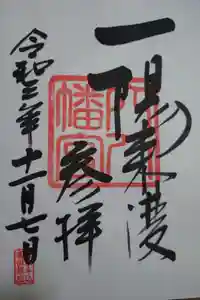 一陽来復
参拝
令和三年十一月七日
幡宮